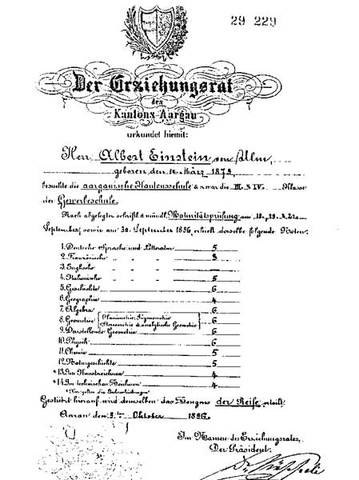 29 229
Der Erziehungsrat
des
Kantons Aargau
urkundet hiemit:
Herr Albert Einstein von Ulm,
geboren den 14. März 1879,
besuchte die aargauische Kantonsschule & zwar die III. & IV. Klasse
der Gewerbeschule.
Nach abgelegter schriftl. & mündl. Maturitätsprüfung am 18., 19. & 21.
September, sowie am 30. September 1896, erhielt derselbe folgende Noten:
1. Deutsche Sprache und Litteratur 5
2. Französische 3
3. Englische
4. Italienische 5
5. Geschichte 6
6. Geographie 4
7. Algebra 6
8. Geometrie Planimetrie, Trigonometrie Stereometrie & analytische Geometrie 6
9. Darstellende Geometrie 6
10. Physik 6
11. Chemie 5
12. Naturgeschichte 5
*13. Im Kunstzeichnen 4
*14. Im technischen Zeichnen 4
Gestützt hierauf wird demselben das Zeugnis der Reife erteilt.
Aarau den 3. Oktober 1896.
Im Namen des Erziehungsrates,
Der Präsident: